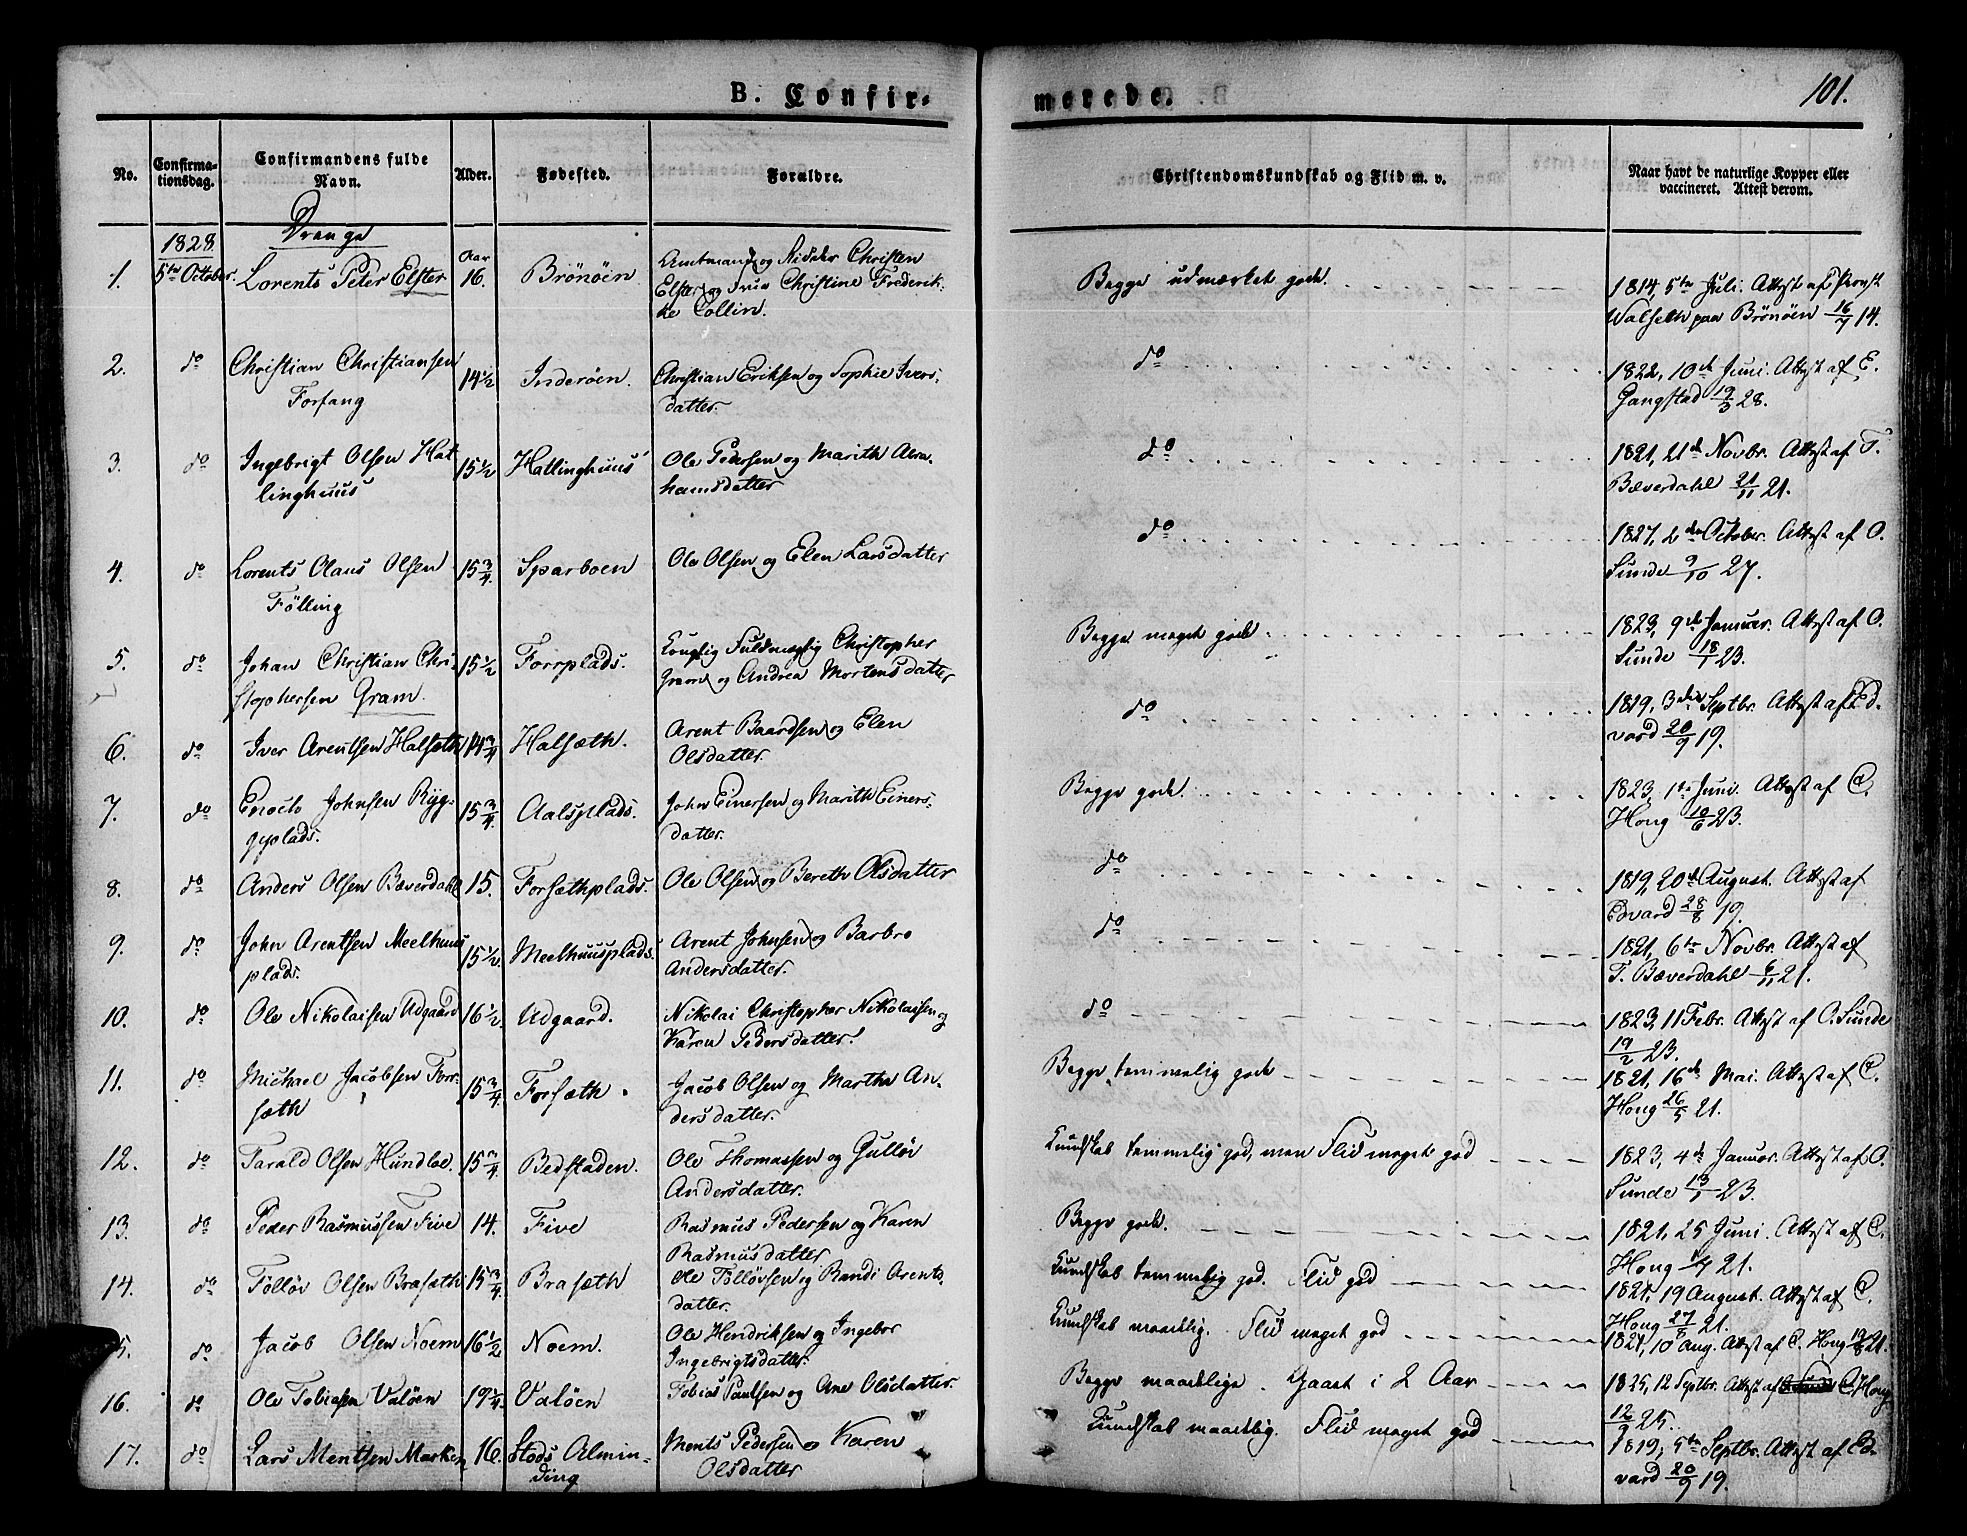 B. Confir-
merede.
101.
No.
Confirma-
tionsdag.
Confirmandens fulde
Navn.
Alder.
Fødested.
Forældre.
Christendomskundskab og Flid m. v.
Naar havt de naturlige Kopper eller
vaccineret. Attest derom.
1828
Drenge
Aar
1. 5te October. Lorents Peter Elster 16. Brönöen Amtmand og Ridder Christen
Elster og Frue Christine Frederik-
ke Collin.
Begge udmærket gode.
1814, 5te Juli. Attest af Provst
Walseth paa Brönöen 16/7 14.
2. do Christian Christiansen
Forfang
14 1/2 Inderöen. Christian Eriksen og Sophie Ivers-
datter.
do
1822, 10de Juni. Attest af E.
Gangstad 19/3 28.
3. do Ingebrigt Olsen Hal-
linghuus
15 1/2 Hallinghuus Ole Pedersen og Marith Abra-
hamsdatter
do
1821, 21de Novbr. Attest af T.
Bæverdahl 21/11 21.
4. do Lorents Olaus Olsen
Fölling
15 3/4 Sparboen Ole Olsen og Elen Larsdatter
do
1827, 2den October. Attest af O.
Sunde 9/10 27.
5. do Johan Christian Chri-
stophersen Gram.
15 1/2 Forrplads. Konglig Fuldmægtig Christopher
Gram og Andrea Mortensdatter
Begge meget gode.
1823, 9de Januar. Attest af O.
Sunde 18/1 23.
6. do Iver Arentsen Halsæth 14 3/4 Halsæth. Arent Baardsen og Elen
Olsdatter.
do
1819, 3die Septbr. Attest af Ed-
vard 20/9 19.
7. do Enoch Johnsen Ryg-
gplads.
15 3/4 Aalsplads. John Einersen og Marith Einers-
datter.
Begge gode.
1823, 1te Juni. Attest af C.
Hong 10/6 23.
8. do Anders Olsen Bæverdahl 15. Forsæthplads. Ole Olsen og Bereth Olsdatter
do
1819, 20de August. Attest af
Edvard 28/8 19.
9. do John Arentsen Meelhuus
plads.
15 1/2 Meelhuusplads. Arent Johnsen og Barbro
Andersdatter.
do
1821, 6te Novbr. Attest af
T. Bæverdahl 6/11 21.
10. do Ole Nikolaisen Udgaard 16 1/2 Udgaard. Nikolai Christopher Nikolaisen og
Karen Pedersdatter.
do
1823, 11 Febr. Attest af O. Sunde
19/2 23.
11. do Michael Jacobsen For-
sæth
15 3/4 Forsæth. Jacob Olsen og Martha An-
dersdatter.
Begge temmelig gode
1821, 16de Mai. Attest af C.
Hong 26/5 21.
12. do Tarald Olsen Hundboe. 15 3/4 Bedstaden. Ole Thomassen og Gullöv
Andersdatter.
Kundskab temmelig god, men Flid meget god
1823, 4de Januar. Attest af O.
Sunde 13/1 23.
13. do Peder Rasmussen Five 14. Five Rasmus Pedersen og Karen
Rasmusdatter
Begge gode.
1821, 25 Juni. Attest af C.
Hong 21.
14. do Tollöv Olsen Brasæth 15 3/4 Brasæth Ole Tollövsen og Randi Arents-
datter.
Kundskab temmelig god. Flid god
1821, 19 August. Attest af C.
Hong 27/8 21.
15. do Jacob Olsen Noem 16 1/2 Noem. Ole Hendriksen og Ingebor
Ingebrigtsdatter.
Kundskab maadelig. Flid meget god
1821, 10 Aug. Attest af C. Hong 21.
16. do Ole Tobiasen Valöen 19 1/4 Valöen Tobias Paulsen og Ane Olsdatter.
Begge maadelige. Gaaet i 2 Aar
1825, 12 Septbr. Attest af C. Hong
12/9 25.
17. do Lars Mentsen Marken 16. Stods Almin-
ding
Ments Pedersen og Karen
Olsdatter
Kundskab maadelig. Flid meget god
1819, 5te Septbr. Attest af Ed-
vard 20/9 19.